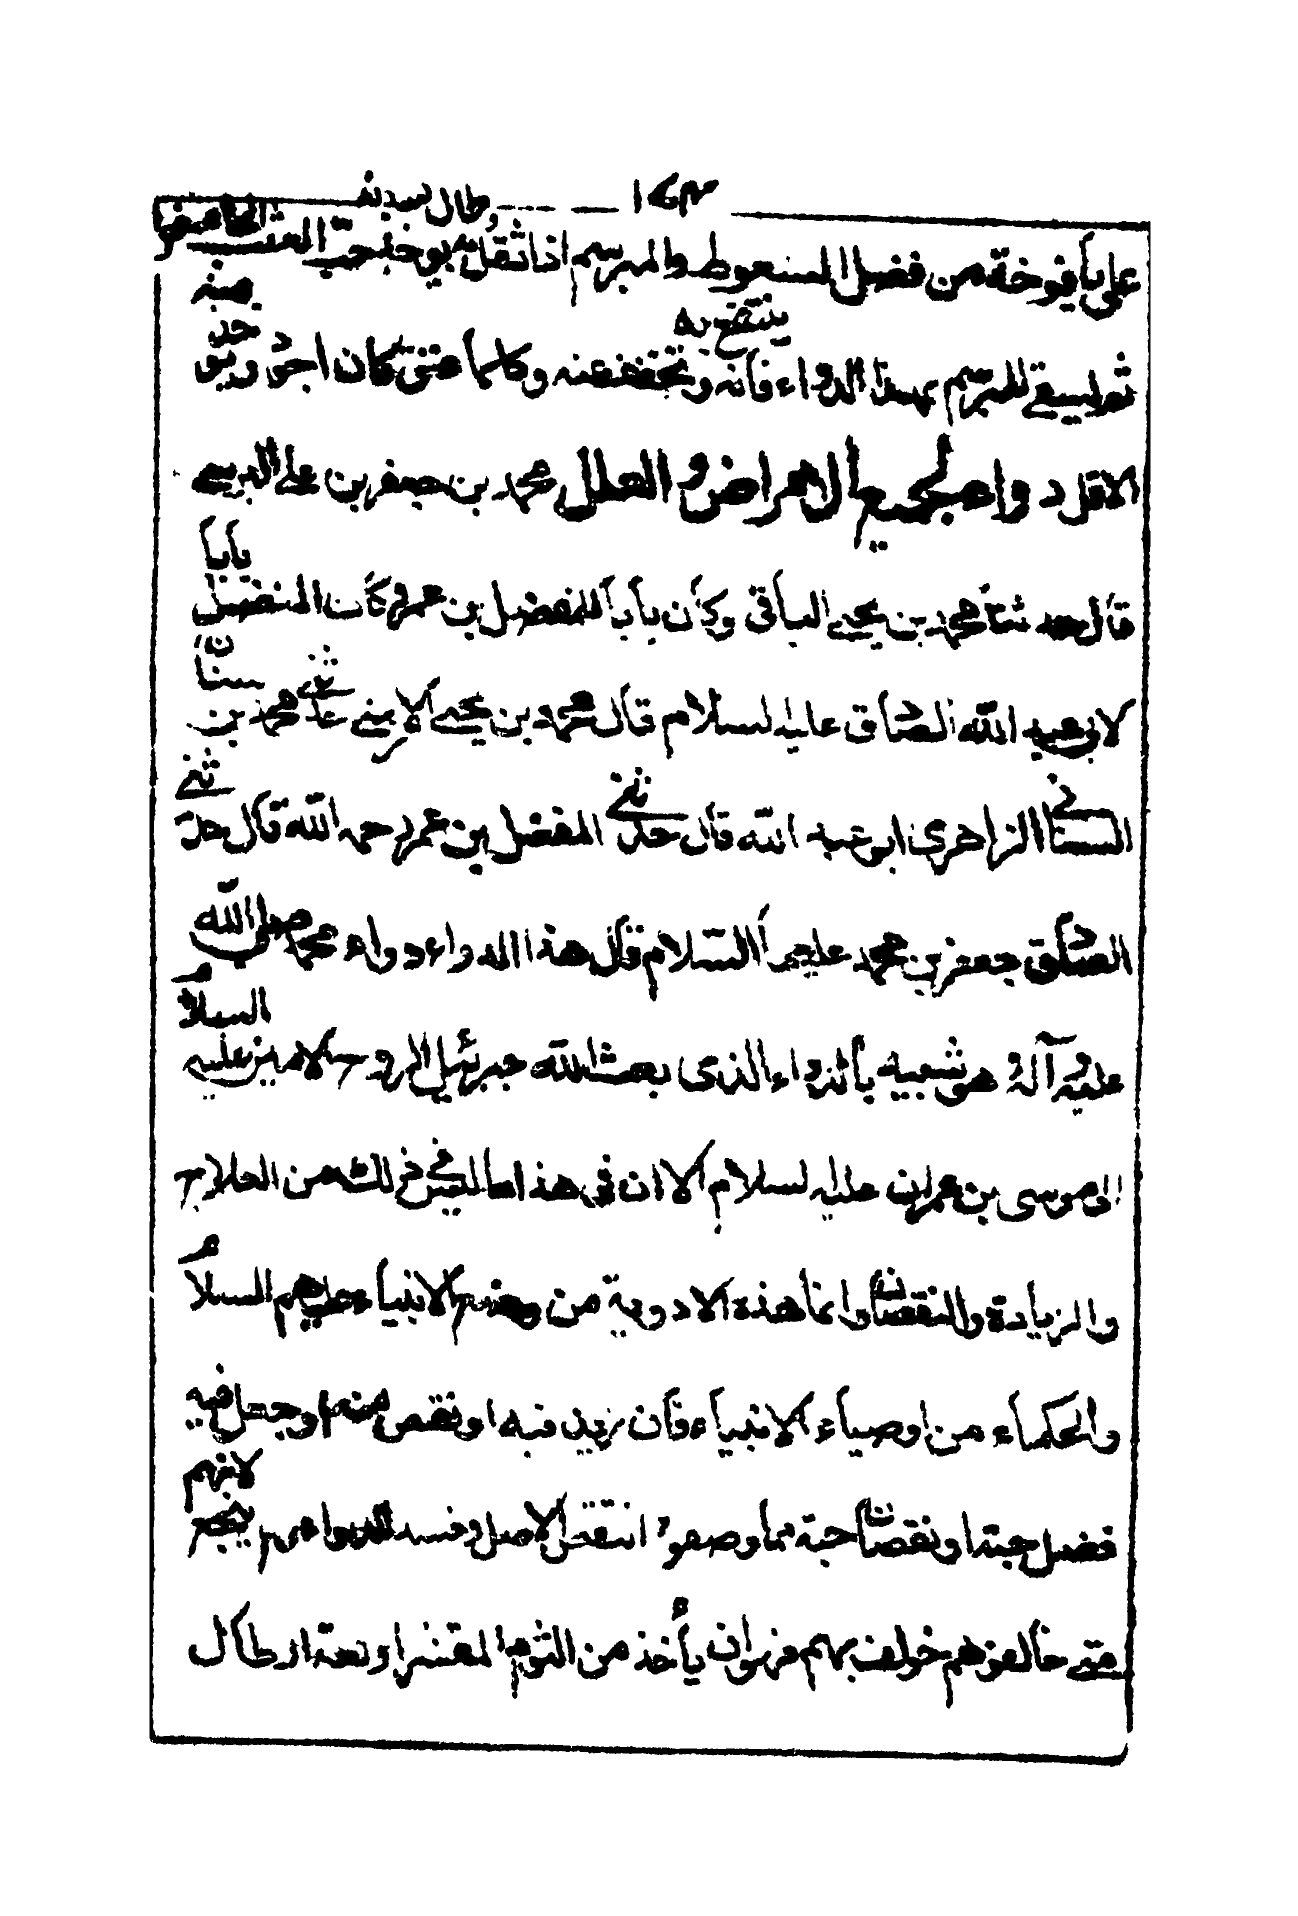 على يافوخه من فضل السعوط والمبرسم اذا ثقل
ثم ليسقى المبرسم بهذا الدواء فانه وتخفف عنه وكلما عتق كان اجود
ينتفع به
الاقل دواء لجميع الامراض والعلل محمد بن جعفر بن علي البرسي
قال حدثنا محمد بن يحيى البابي وكان بابا للمفضل بن عمر وكان المفضل بابا
لابي عبد الله الصادق عليه السلام قال محمد بن يحيى الارمني حدثني محمد بن سنان
السناني الزاهري ابو عبد الله قال حدثني المفضل بن عمر رحمه الله قال حدثني
الصادق جعفر بن محمد عليهما السلام قال هذا الدواء دواء محمد صلى الله
عليه وآله وهو شبيه بالدواء الذى بعث الله جبرئيل الروح الامين عليه السلام
الى موسى بن عمران عليه السلام الا ان في هذا ما ليس في ذلك من العلاج
والزيادة والنقصان وانما هذه الادوية من وضع الانبياء عليهم السلام
والحكماء من اوصياء الانبياء فان زيد فيه او نقص منه او جعل فيه
فضل حبة او نقصان حبة مما وصفوه انتقض الاصل وفسد الدواء ولم ينجع لانهم
متى خالفوهم خولف بهم هو ان يأخذ من الثوم المقشر اربعة ارطال